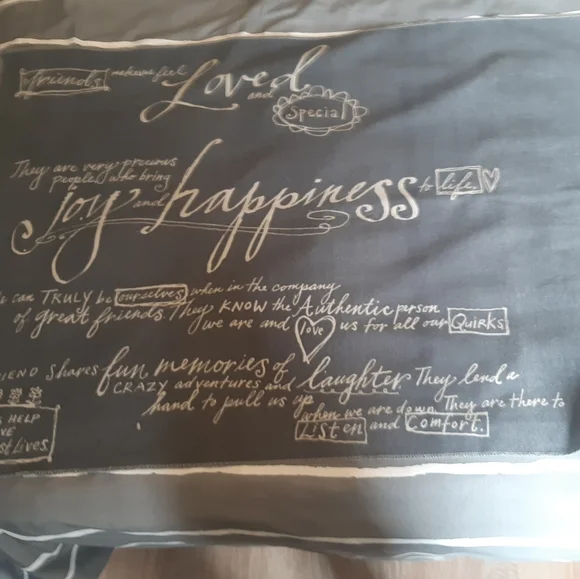 friends make us feel Loved and Special
They are very precious
people who bring
joy and happiness to life.
can TRULY be ourselves when in the company
of great friends. They KNOW the Authentic person
we are and love us for all our QUIRKS
IEND shares fun memories of laughter They lend a
CRAZY adventures and
hand to pull us up
when we are down They are there to
Listen and Comfort.
HELP
VE
st Lives